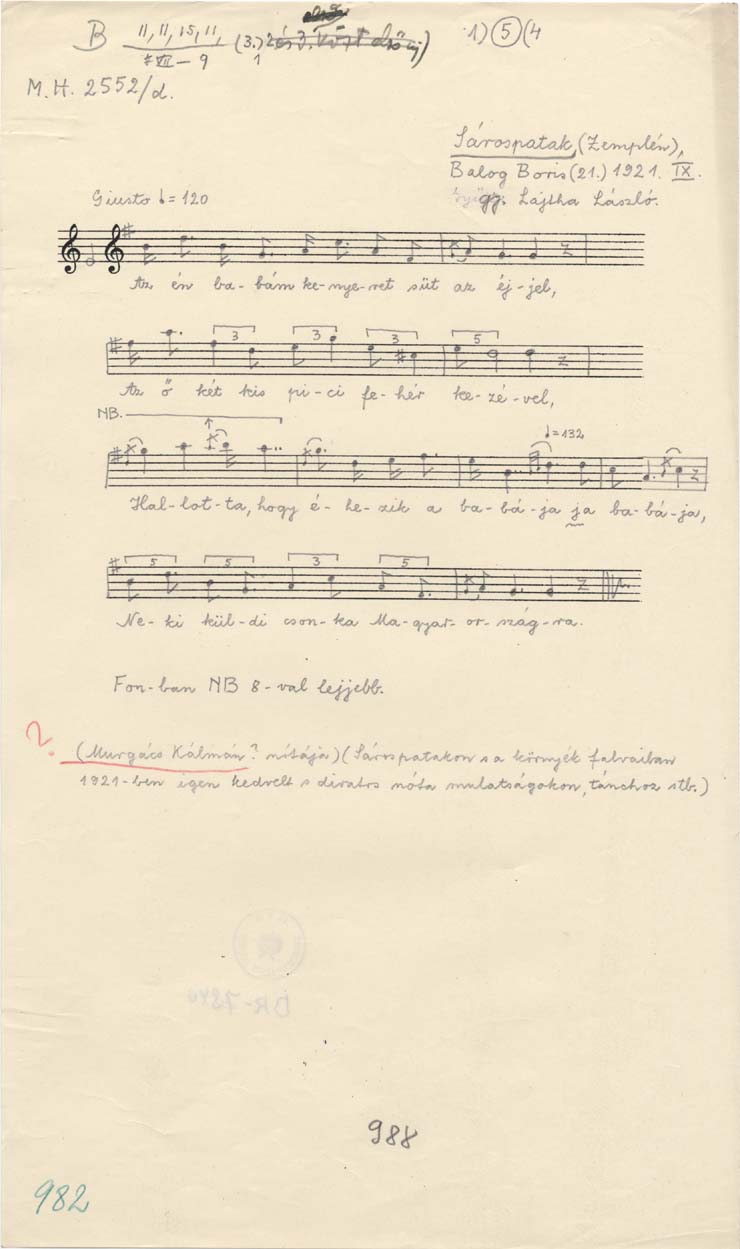 B 11, 11, 15, 11, (3.) 1) 5 (4
VII – 9 1
M.H. 2552/d.
Sárospatak, (Zemplén),
Balog Boris (21.) 1921. IX.
gy. Lajtha László.
Giusto = 120
Az én ba-bám ke-nye-ret süt az éj-jel,
3 3 3 5
Az ő két kis pi-ci fe-hér ke-zé-vel,
NB.
= 132
Hal-lot-ta, hogy é-he-zik a ba-bá-ja ja ba-bá-ja,
5 5 3 5
Ne-ki kül-di cson-ka Ma-gyar-or-szág-ra.
Fon-ban NB 8-val lejjebb.
?
(Murgács Kálmán? nótája) (Sárospatakon s a környék falvaiban
1921-ben igen kedvelt s divatos nóta mulatságokon, tánchoz stb.)
988
982